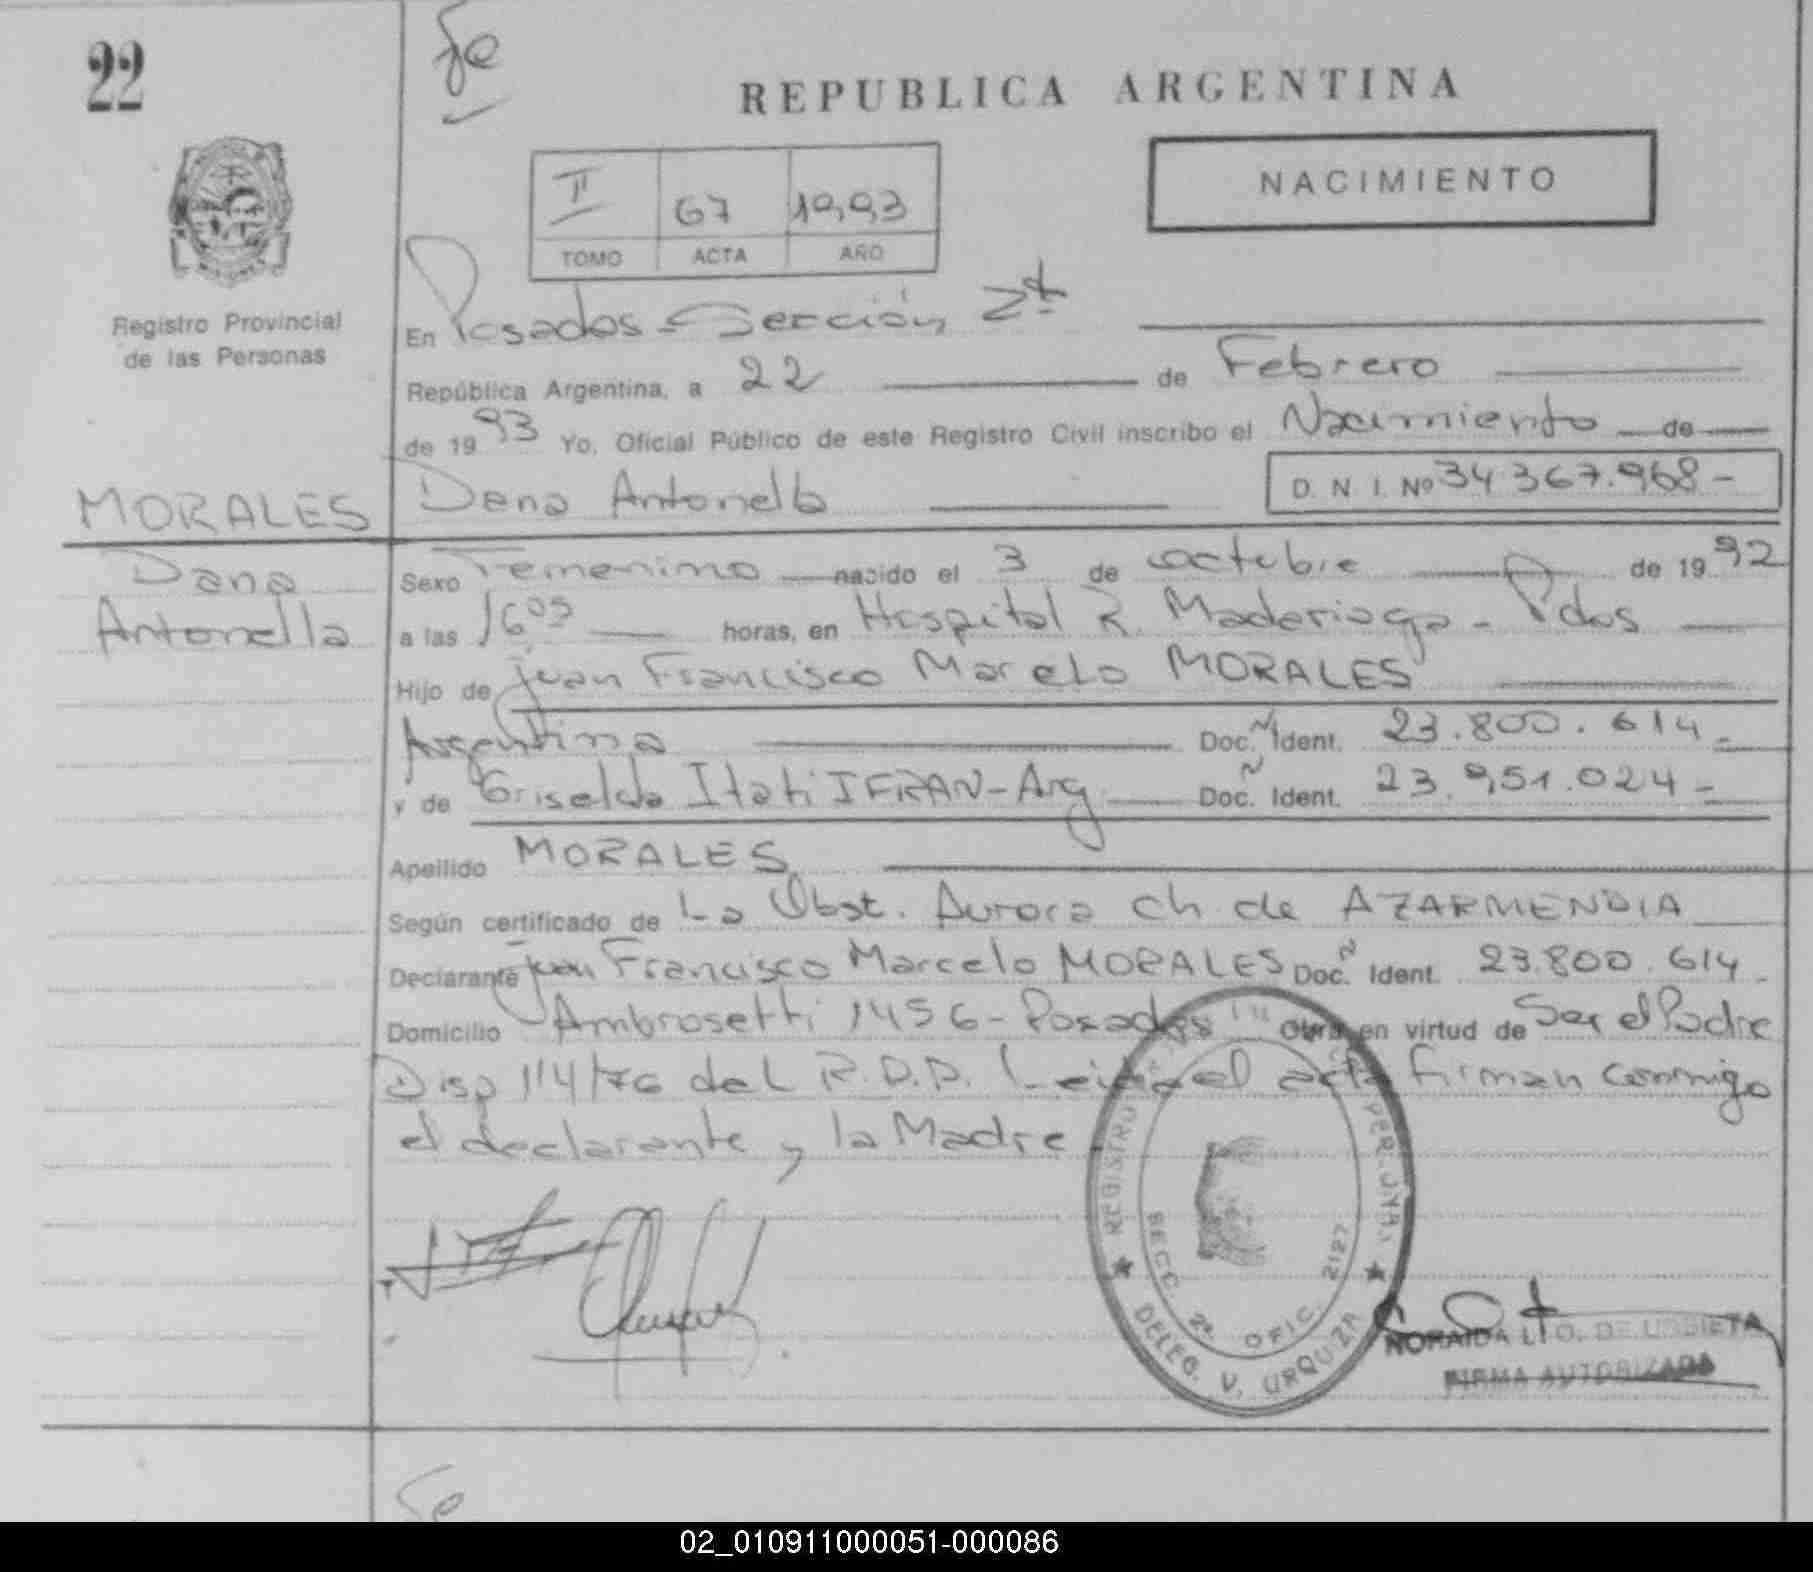 22
fe
REPUBLICA ARGENTINA
NACIMIENTO
II 67 1993
TOMO ACTA AÑO
Registro Provincial
de las Personas
En Posadas - Sección 2ª
República Argentina, a 22 de Febrero
de 1993 Yo, Oficial Público de este Registro Civil inscribo el Nacimiento de
MORALES Dana Antonella D. N. I. Nº 34.367.968 -
Dana
Antonella
Sexo Femenino nacido el 3 de octubre de 1992
a las 16 05 horas, en Hospital R. Madariaga - Pdas
Hijo de Juan Francisco Marcelo MORALES
Argentina Doc. Ñ Ident. 23.800.614 -
y de Griselda Itati IFRAN - Arg Doc. Ñ Ident. 23.951.024 -
Apellido MORALES
Según certificado de La Obst. Aurora Ch. de AZARMENDIA
Declarante Juan Francisco Marcelo MORALES Doc. Ñ Ident. 23.800.614 -
Domicilio Ambrosetti 1456 - Posadas Obra en virtud de Ser el Padre
Disp 114/76 del R.D.D. Leida el acta firman conmigo
el declarante y la Madre
REGISTRO
SECC. 2ª OFIC. 2127
DELEG. V. URQUIZA
NORAIDA
FIRMA AUTORIZADA
fe
02_010911000051-000086